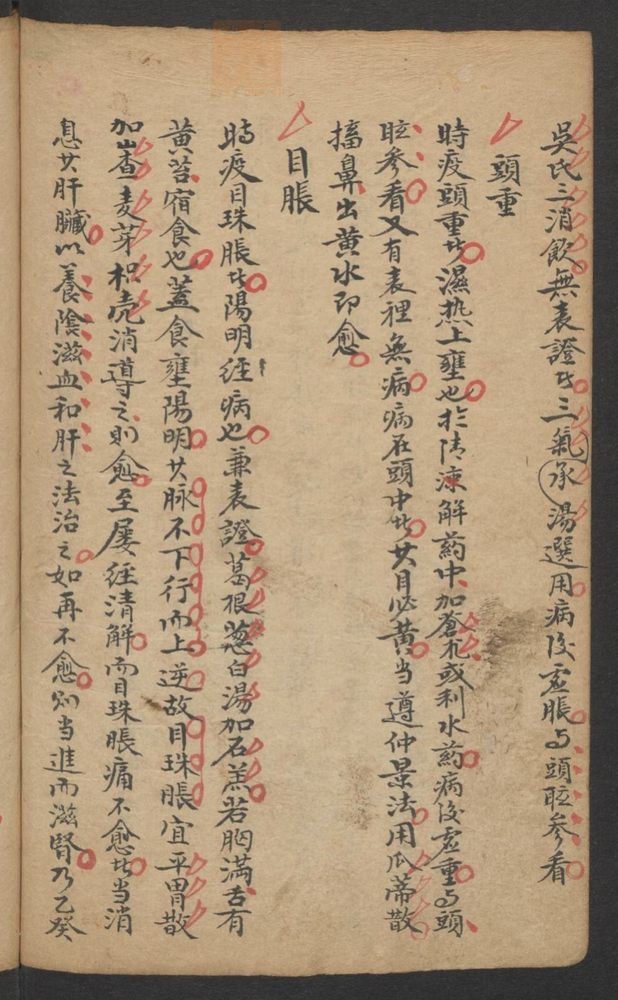 吳氏三消飲無表證者三氣承湯選用病後虛脹与頭眩參看
頭重
時疫頭重者濕热上壅也於清凉解药中加蒼朮或利水药病後虛重与頭
眩參看又有表裡無病病在頭中者其目必黄当遵仲景法用瓜蒂散
搐鼻出黄水即愈
目脹
時疫目珠脹者陽明經病也兼表證葛根葱白湯加石羔若胸滿舌有
黄苔宿食也蓋食壅陽明其脉不下行而上逆故目珠脹宜平胃散
加山查麦芽枳壳消導之則愈至屡經清解而目珠脹痛不愈者当消
息其肝臟以養陰滋血和肝之法治之如再不愈則当進而滋腎乃乙癸